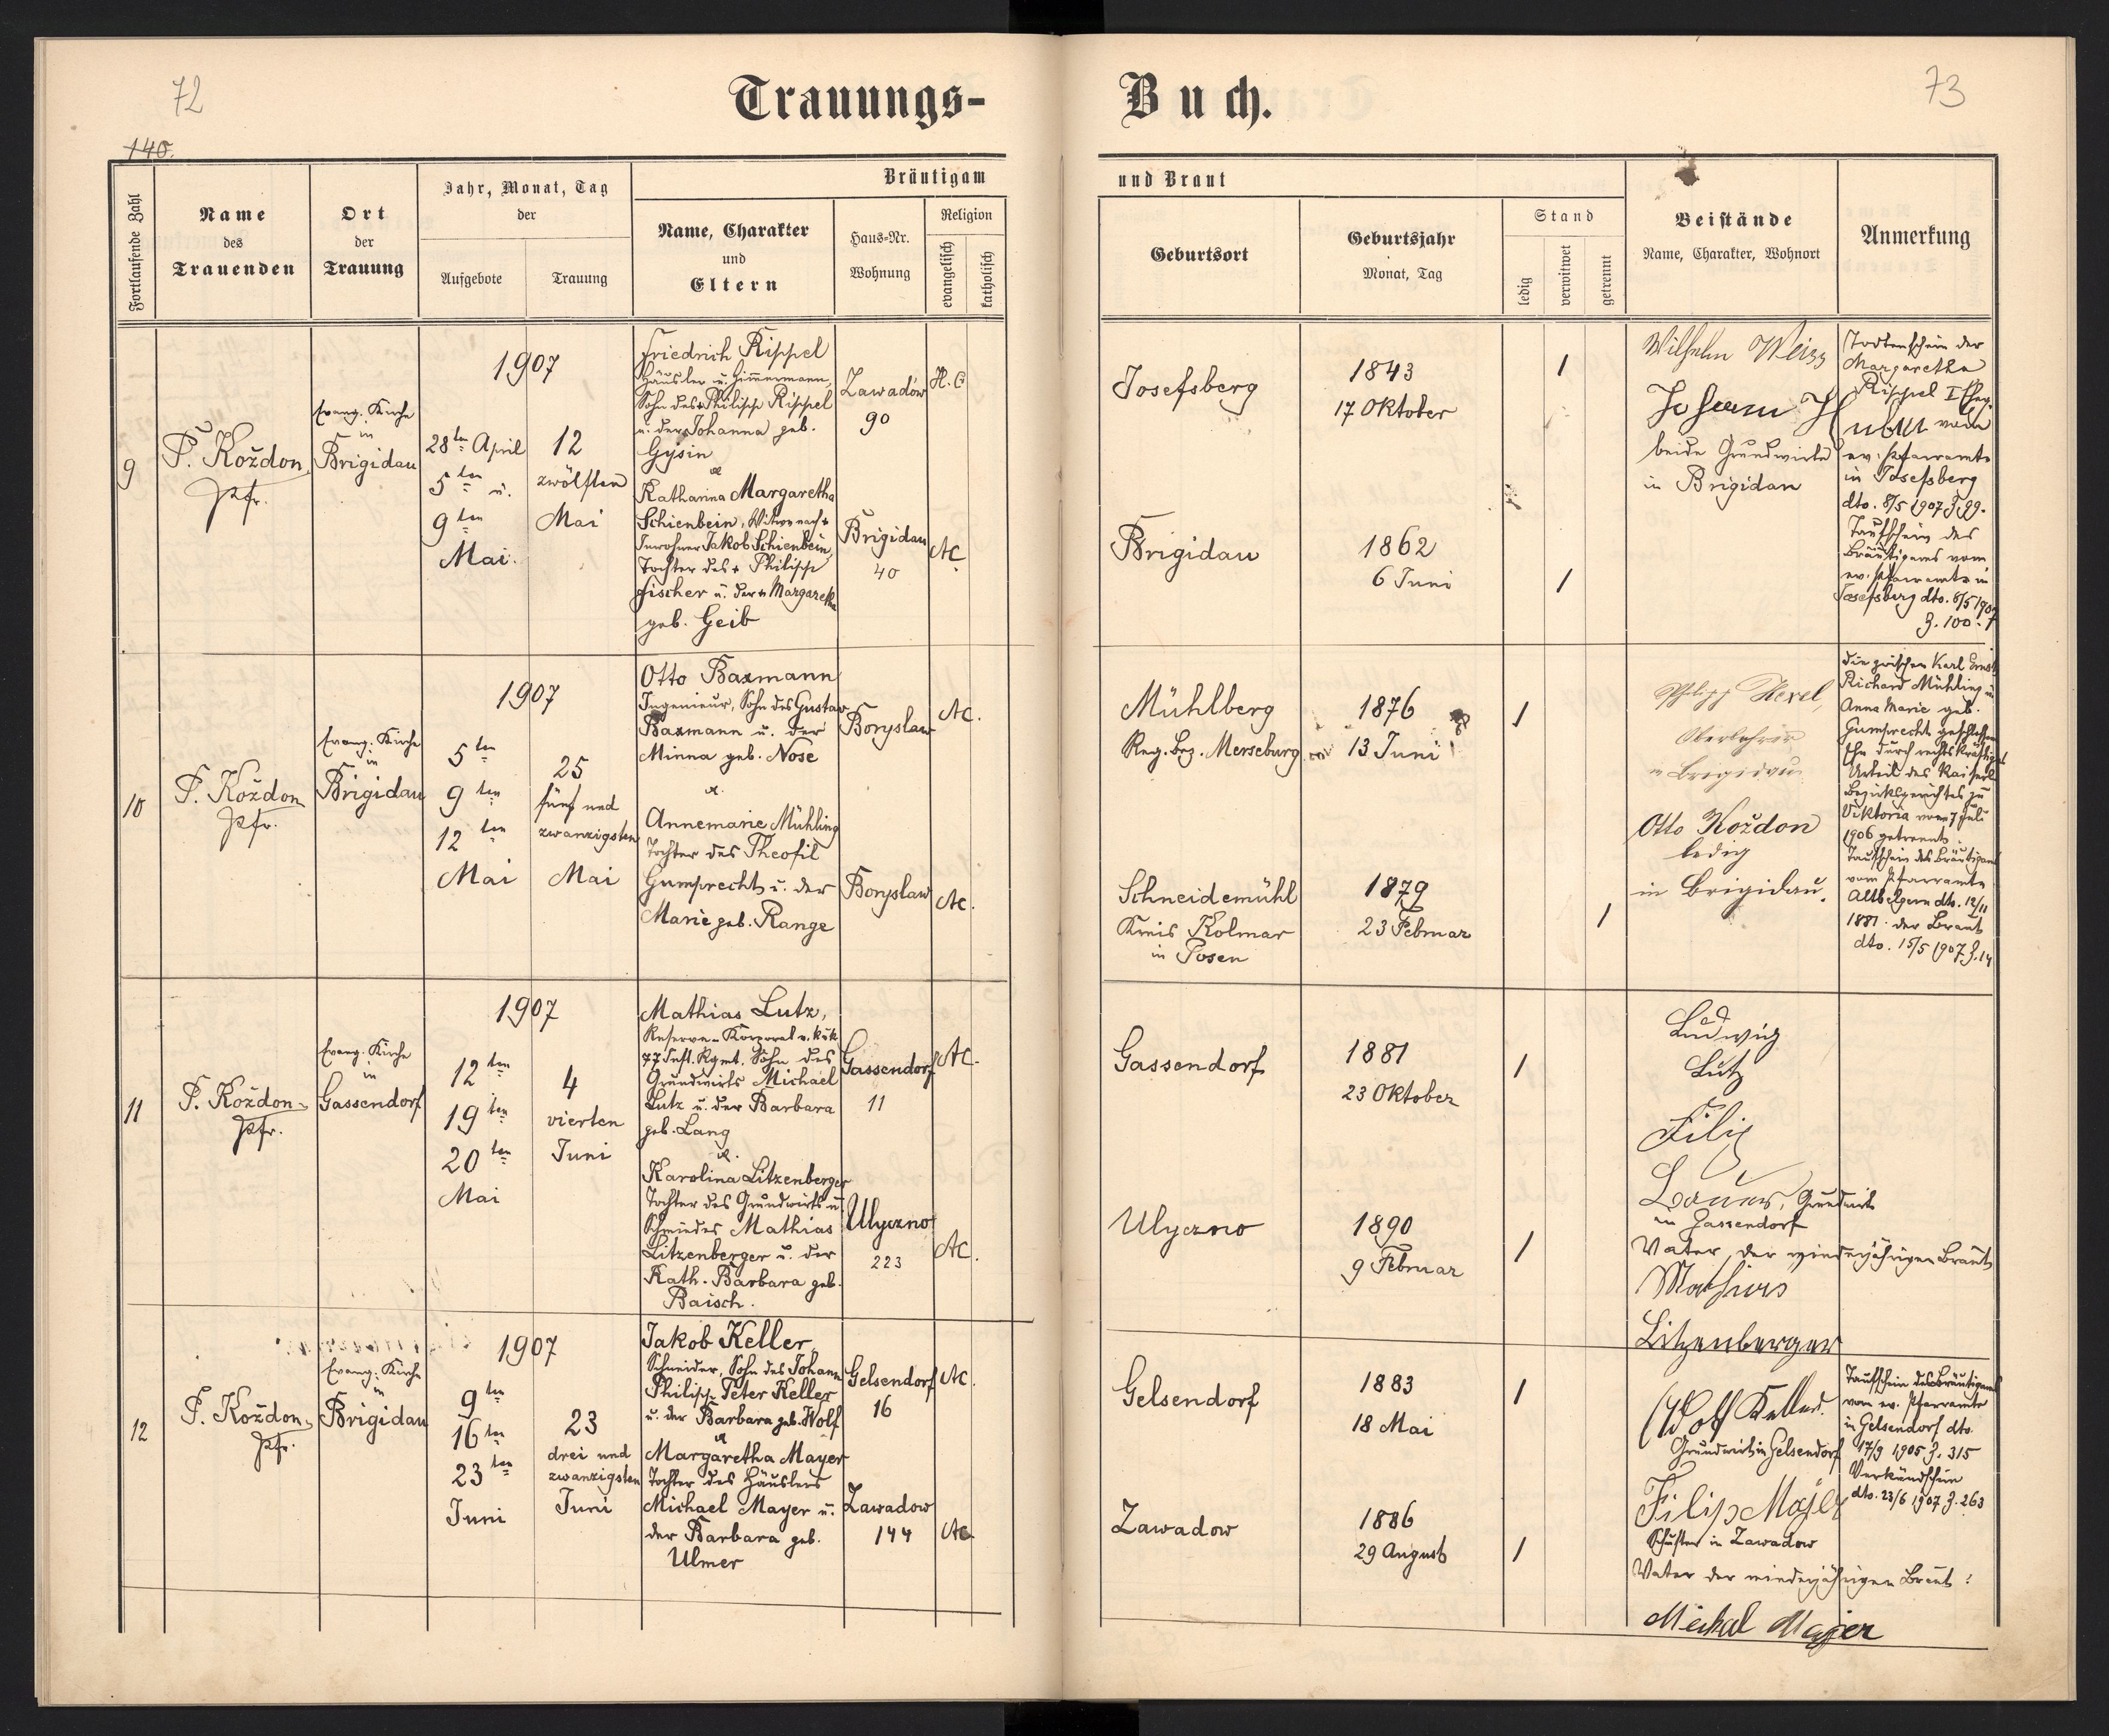 72
Trauungs-
140.
Fortlaufende Zahl
Name
des
Trauenden
Ort
der
Trauung
Jahr, Monat, Tag
der
Aufgebote
Trauung
Bräutigam
Name, Charakter
und
Eltern
Haus-Nr.
Wohnung
Religion
evangelisch
katholisch
9
P. Koždon,
Pfr.
Evang. Kirche
in
Brigidau
1907
28ten April
5ten u.
9ten
Mai.
12
zwölften
Mai
Friedrich Rippel
Häusler u. Zimmermann,
Sohn des + Philipp Rippel
u. der + Johanna geb.
Gysin
u.
Katharina Margaretha
Schienbein, Witwe nach +
Inwohner Jakob Schienbein,
Tochter des + Philipp
Fischer u. der + Margaretha
geb. Geib
Zawadów
90
H.C.
Brigidau
40
AC.
10
P. Koždon
Pfr.
Evang. Kirche
in
Brigidau
1907
5ten
9ten
12ten
Mai
25
fünf und
zwanzigsten
Mai
Otto Baxmann
Ingenieur, Sohn des Gustav
Baxmann u. der
Minna geb. Nose
u.
Annemarie Mühling
Tochter des Theofil
Gumprecht u. der
Marie geb. Range
Boryslaw
AC.
Boryslaw
AC.
11
P. Koždon
Pfr.
Evang. Kirche
in
Gassendorf
1907
12ten
19ten
20ten
Mai
4
vierten
Juni
Mathias Lutz,
Reserve-Korporal v. k.u.k.
77 Inft. Rgmt. Sohn des
Grundwirts Michael
Lutz u. der Barbara
geb. Lang
u.
Karolina Litzenberger
Tochter des Grundwirts u.
Schmiedes Mathias
Litzenberger u. der
Kath. Barbara geb.
Baisch.
Gassendorf
11
AC.
Ulyczno
223
AC.
12
P. Koždon,
Pfr.
Evang. Kirche
in
Brigidau
1907
9ten
16ten
23ten
Juni
23
drei und
zwanzigsten
Juni
Jakob Keller,
Schneider, Sohn des Johann
Philipp Peter Keller
u. der Barbara geb. Wolf
u.
Margaretha Mayer
Tochter des Häuslers
Michael Mayer u.
der Barbara geb.
Ulmer
Gelsendorf
16
AC.
Zawadow
144
AC.
73
Buch.
und Braut
Geburtsort
Geburtsjahr
Monat, Tag
Stand
ledig
verwitwet
getrennt
Beistände
Name, Charakter, Wohnort
Anmerkung
Josefsberg
1843
17 Oktober
1
Brigidau
1862
6 Juni
1
Wilhelm Weisz
Johann
beide Grundwirte
in Brigidau
Todtenschein der
Margaretha
Rippel I Eheg.
vom
ev. Pfarramte
in Josefsberg
dto. 8/5 1907 Z. 99.
Taufschein des
Bräutigams vom
ev. Pfarramte in
Josefsberg dto. 8/5 1907
Z. 100.
Mühlberg
Reg. Bez. Merseburg
1876
13 Juni
1
Schneidemühl
Kreis Kolmar
in Posen
1879
23 Februar
1
Philipp Hexel,
Oberlehrer
in Brigidau
Otto Koždon
ledig
in Brigidau.
Die zwischen Karl Ernst
Richard Mühling u.
Anna Marie geb.
Gumprecht geschlossene
Ehe durch rechtskräftiges
Urteil des Kaiserl.
Bezirksgerichtes zu
Viktoria vom 7 Juli
1906 getrennt.
Taufschein des Bräutigams
vom Pfarramte
Altbelgern dto. 12/11
1881. der Braut
dto. 15/5 1907 Z. 14
Gassendorf
1881
23 Oktober
1
Ulyczno
1890
9 Februar
1
Ludwig
Lutz
Filip
Bauer, Grundwirt
in Gassendorf
Vater der minderjährigen Braut
Mathias
Litzenberger
Gelsendorf
1883
18 Mai
1
Zawadow
1886
29 August
1
Adolf Keller.
Grundwirt in Gelsendorf
Filip Majer
Schuster in Zawadow
Vater der minderjährigen Braut:
Meichal Majer
Taufschein des Bräutigams
vom ev. Pfarramte
in Gelsendorf dto.
17/9 1905 Z. 315
Verkündschein
dto. 23/6 1907 Z. 263